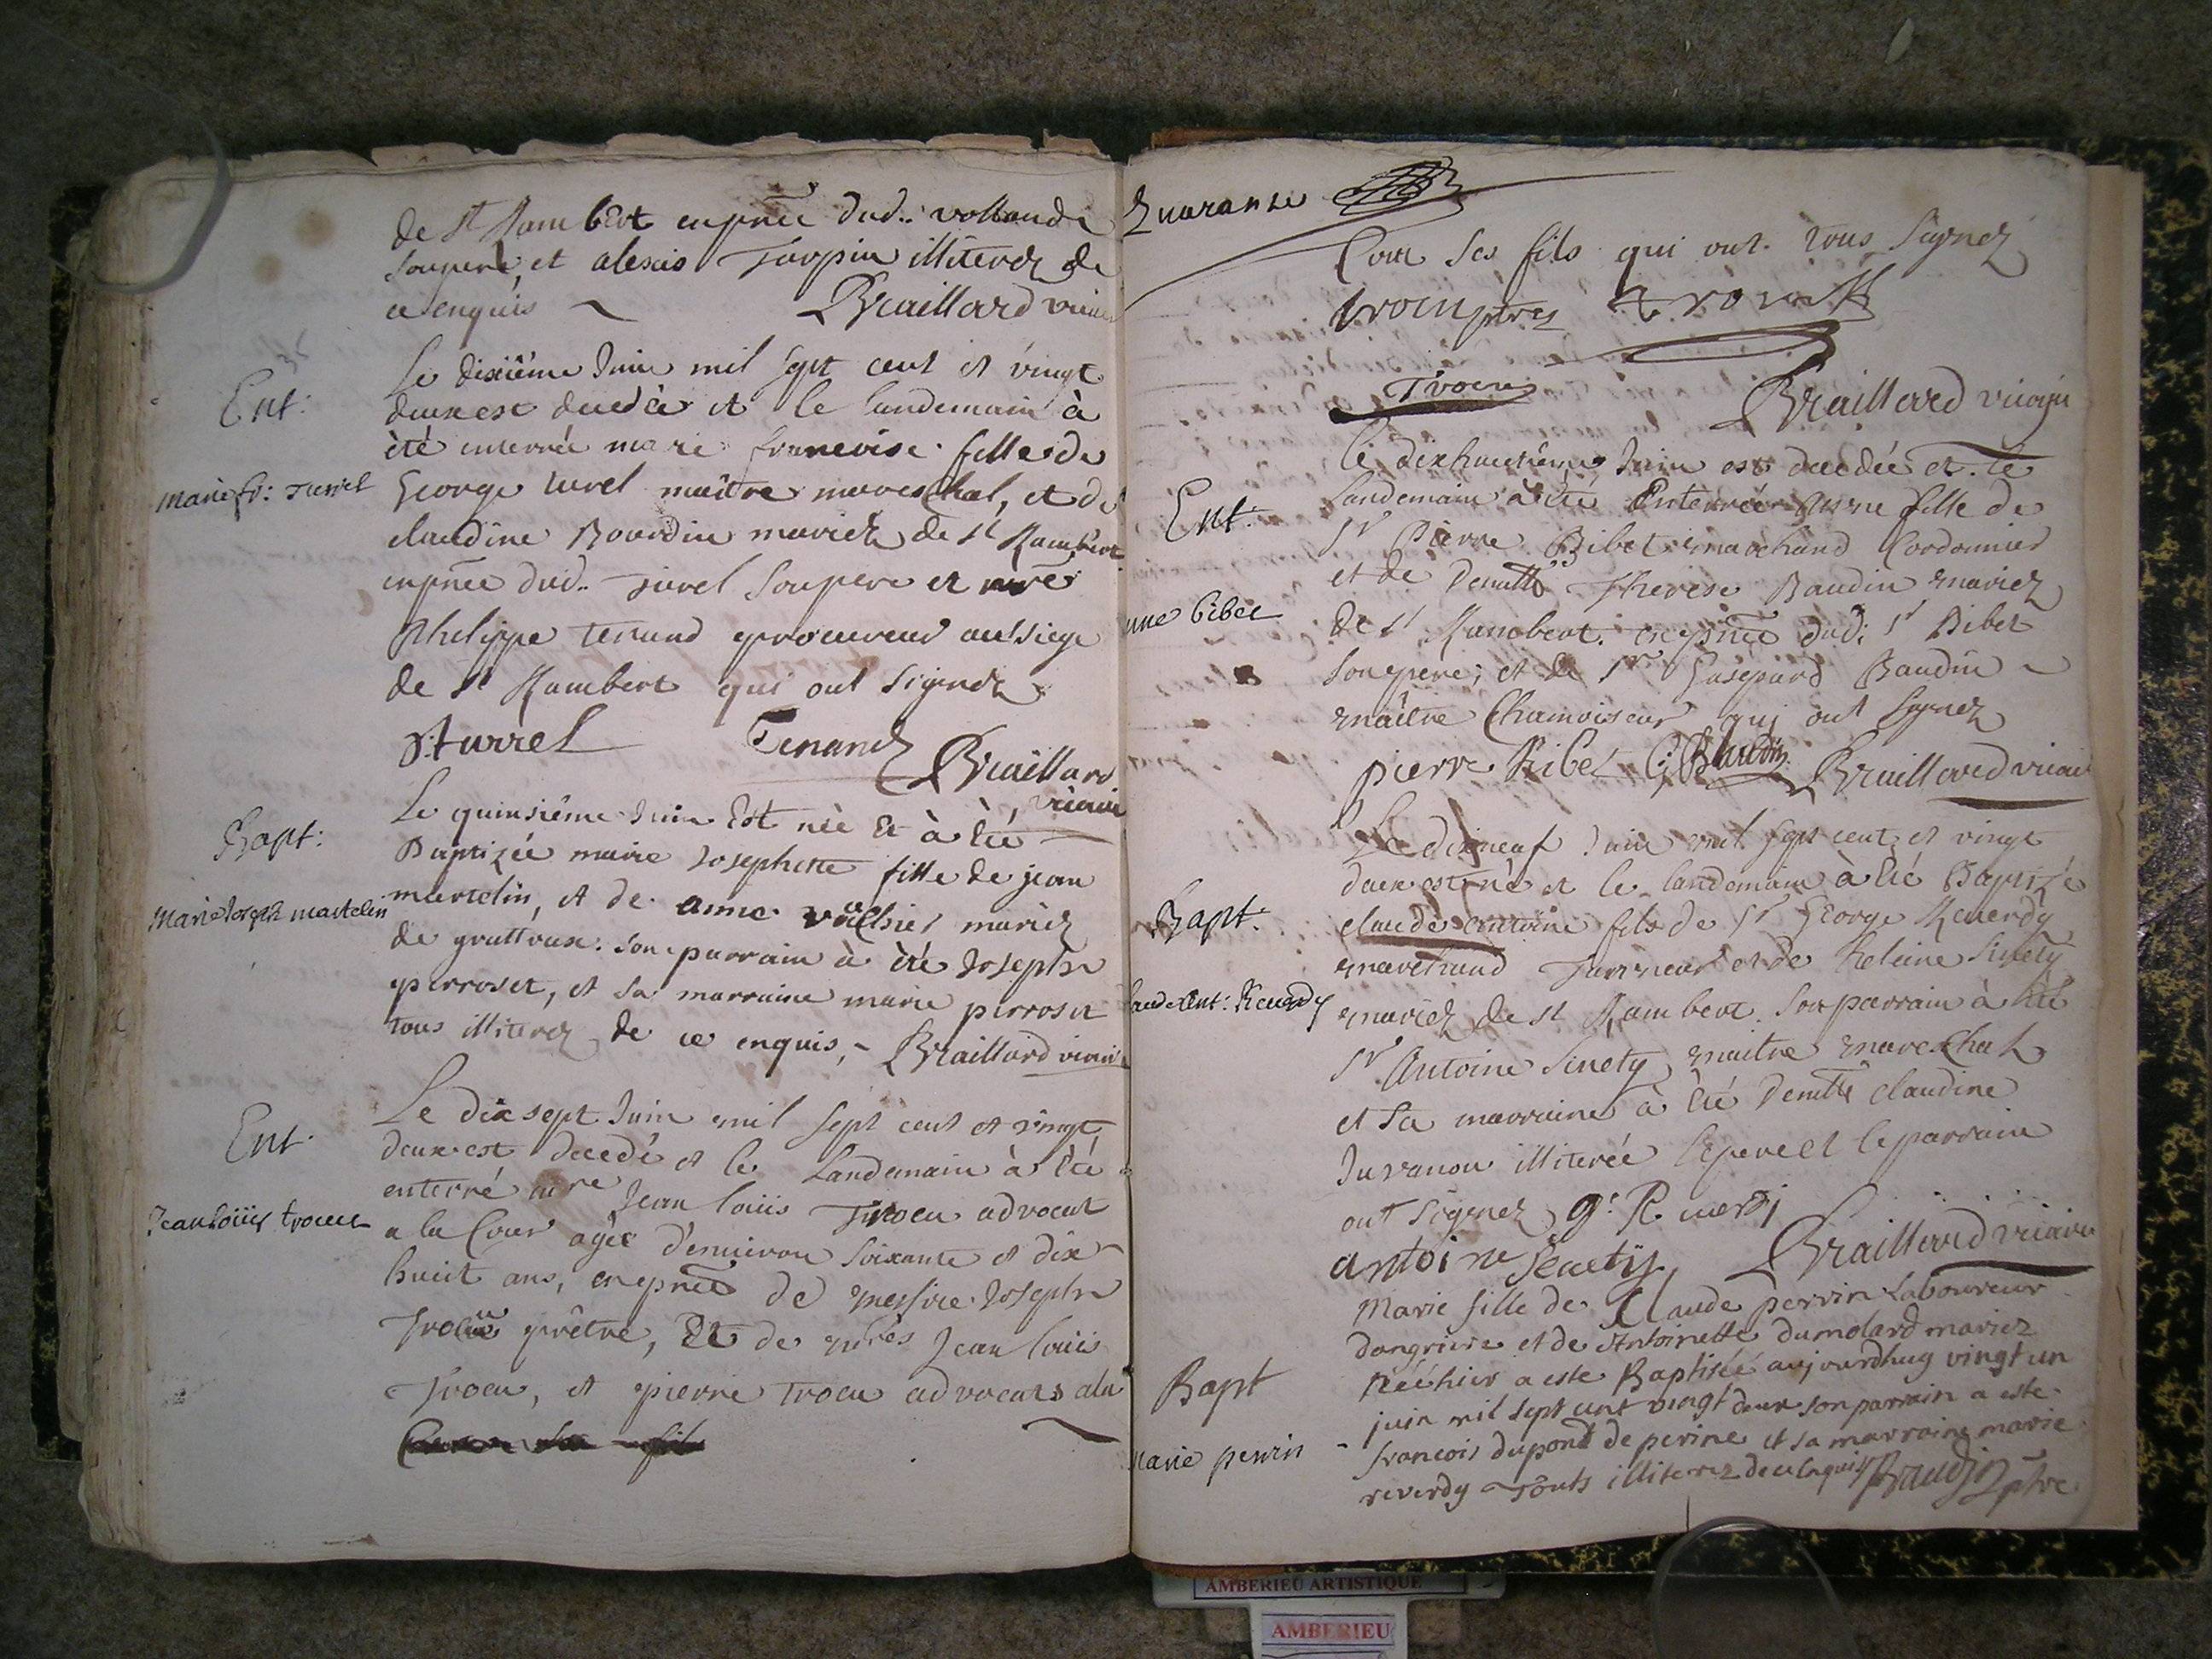 de St Rambert en pñce dud.. vollande
son pere, et alexis Turpin illiterez de
ce enquis Braillard vicaire
Ent:
marie fr: Turrel
Le dixiême Juin mil sept cent et vingt
deux est decedée et le landemain à
été enterrée marie francoise fille de
George turel maître mareschal, et de
claudine Bourdin mariez de St Rambert
en pñce dud.. Turel son pere et mre
Philippe tenand procureur au siege
de St Rambert qui ont signez
Turrel Tenand Braillard
vicaire
Bapt:
Marie Joseph martelin
Le quinsiême Juin Est née Et à été
Baptizée marie Josephette fille de jean
martelin, et de anne mariez
de grattoux. son parrain à été Joseph
perroset, et sa marraine marie perroset
tous illiterez de ce enquis, Braillard vicaire
Ent.
Jean Loüis trocu
Le dix sept Juin mil sept cent et vingt
deux est decedé et le Landemain à été
enterré mre Jean louis Trocu advocat
a la Cour agée d'environ soixante et dix
huit ans, en pñce de messire Joseph
Trocu prêtre, Et de mres Jean louis
Trocu, et pierre trocu advocats a la
Quarante
Cour ses fils qui ont tous signez
trocu ptre Trocu
Trocu Braillard vicaire
Ent.
anne bibet
Le dixhuitiême Juin est decedée et le
landemain à été Enterrée Anne fille de
Sr Pierre Bibet marchand Cordonnier
et de Demlle Therese Baudin mariez
de St Rambert. en pñce dud: Sr Bibet
son pere; et de Sr Gaspard Baudin
maître Chamoiseur qui ont signez
pierre Bibet G: Baudin Braillard vicaire
Bapt:
claude Ant: Reverdy
Le dixneuf Juin mil sept cent et vingt
deux est né et le landemain à été Baptizé
claude antoine fils de Sr George Reverdy
marchand Tanneur et de Heleine Sinety
mariez de St Rambert. son parrain à été
Sr Antoine Sinety maitre mareschal
et sa marraine à été Demlle claudine
Juvanon illiterée le pere et le parrain
ont signez g: Reverdi
antoine Senety Braillard vicaire
Bapt
Marie perrin
Marie fille de Claude perrin Laboureur
dangriere et de Antoinette dumolard mariez
Néé hier a este Baptiséé aujourdhuy vingt un
juin mil sept cent vingt deux son parrain a este
francois dupont de perine et sa marraine marie
reverdy touts illiterez de ce enquis Baudin ptre
AMBERIEU ARTISTIQUE
AMBERIEU